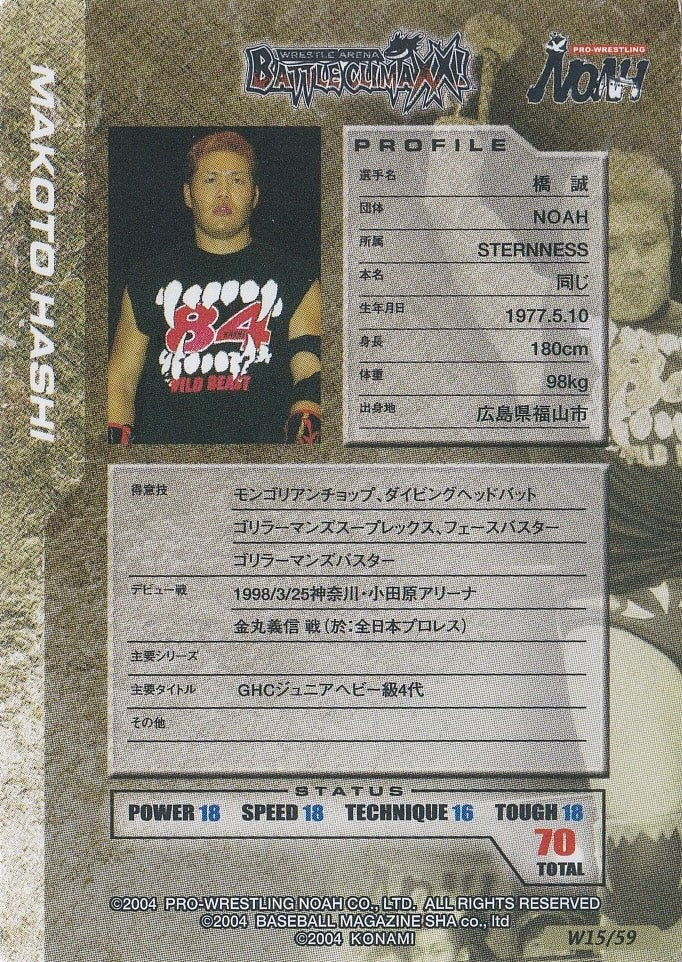 WRESTLE ARENA
BATTLE CLIMAXX!
PRO-WRESTLING
NOAH
MAKOTO HASHI
84
WILD BEAST
PROFILE
選手名 橋 誠
団体 NOAH
所属 STERNNESS
本名 同じ
生年月日 1977.5.10
身長 180cm
体重 98kg
出身地 広島県福山市
得意技 モンゴリアンチョップ、ダイビングヘッドバット
ゴリラーマンズスープレックス、フェースバスター
ゴリラーマンズバスター
デビュー戦 1998/3/25神奈川・小田原アリーナ
金丸義信 戦(於:全日本プロレス)
主要シリーズ
主要タイトル GHCジュニアヘビー級4代
その他
STATUS
POWER 18 SPEED 18 TECHNIQUE 16 TOUGH 18
70
TOTAL
©2004 PRO-WRESTLING NOAH CO., LTD. ALL RIGHTS RESERVED
©2004 BASEBALL MAGAZINE SHA co., ltd
©2004 KONAMI
W15/59